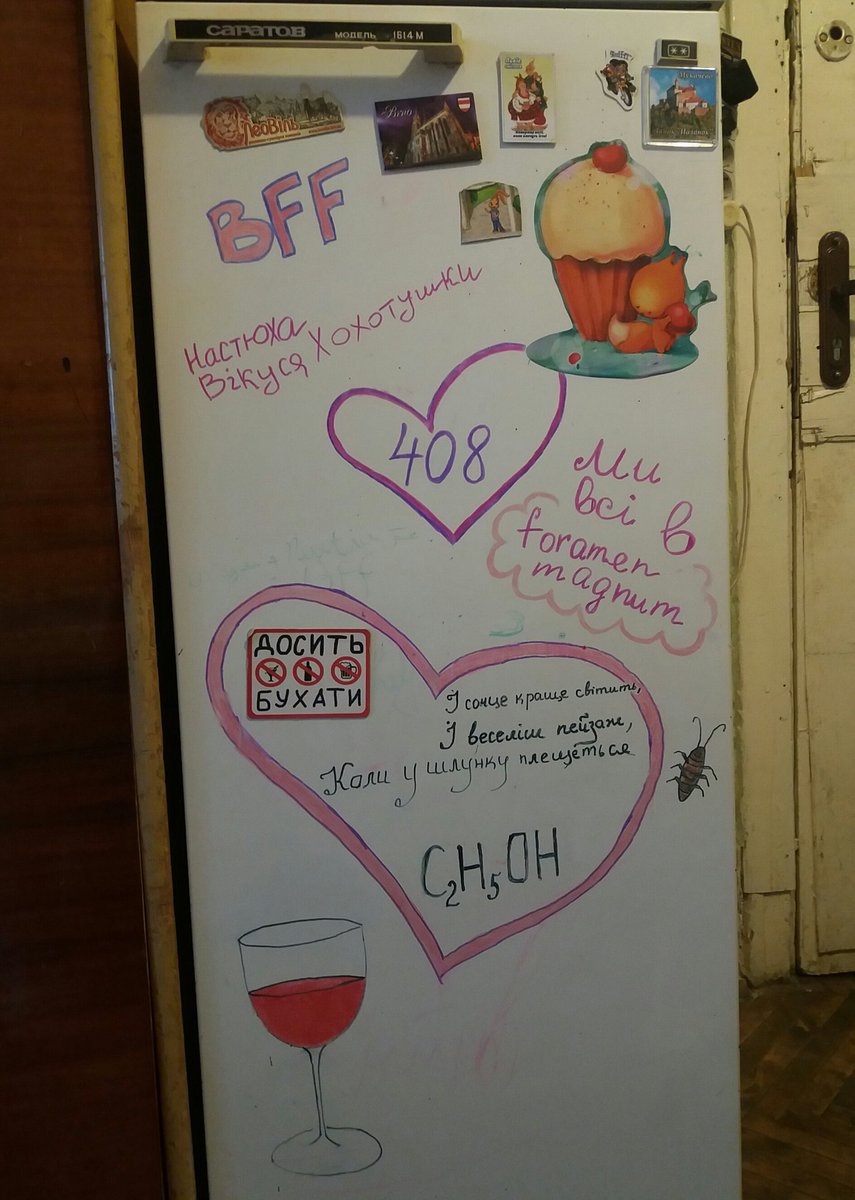 САРАТОВ МОДЕЛЬ 1614М
ЛеоВіль
Brno
Мукачево
Замок Паланок
BFF
Настюха
Вікуся Хохотушки
408
Ми
всі в
foramen
magnum
ДОСИТЬ
БУХАТИ
І сонце краще світить,
І веселіш пейзаж,
Коли у шлунку плещеться
C₂H₅OH